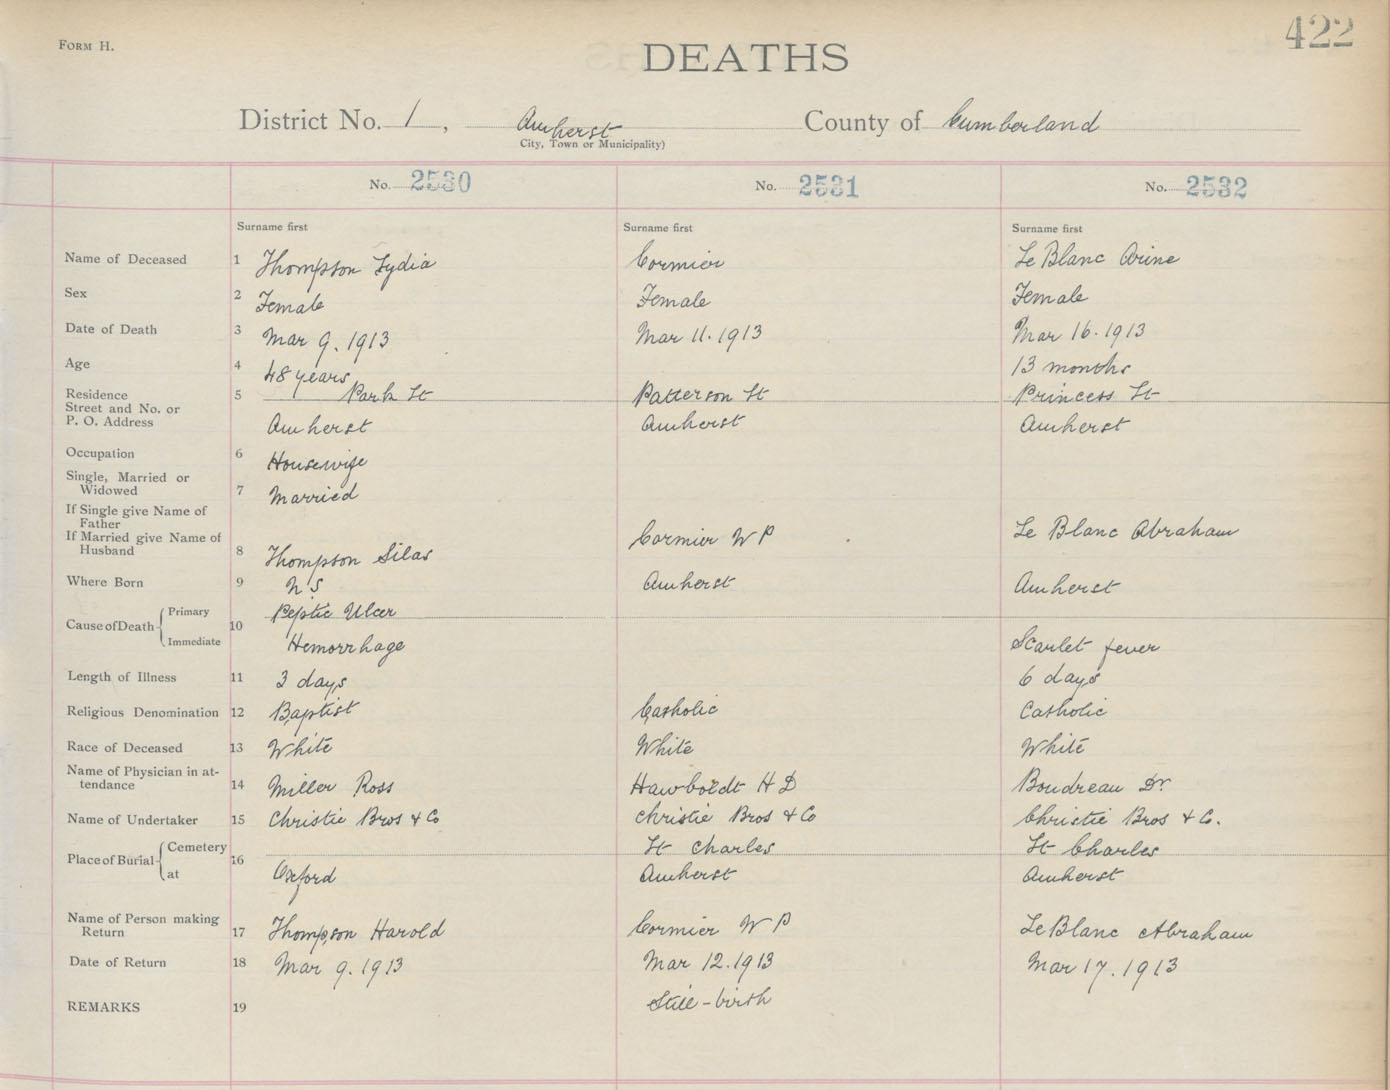 422
FORM H.
DEATHS
District No. 1, Amherst County of Cumberland
City, Town or Municipality)
No. 2530 No. 2531 No. 2532
Surname first Surname first Surname first
Name of Deceased 1 Thompson Lydia Cormier Le Blanc Arine
Sex 2 Female Female Female
Date of Death 3 Mar 9. 1913 Mar 11. 1913 Mar 16. 1913
Age 4 48 years 13 months
Residence 5 Park St Patterson St Princess St
Street and No. or
P. O. Address Amherst Amherst Amherst
Occupation 6 Housewife
Single, Married or
Widowed 7 Married
If Single give Name of
Father
If Married give Name of Cormier W P Le Blanc Abraham
Husband 8 Thompson Silas
Where Born 9 N S Amherst Amherst
Cause of Death 10 Primary Peptic Ulcer
Immediate Hemorrhage Scarlet fever
Length of Illness 11 3 days 6 days
Religious Denomination 12 Baptist Catholic Catholic
Race of Deceased 13 White White White
Name of Physician in at-
tendance 14 Miller Ross Hawboldt H D Boudreau Dr
Name of Undertaker 15 Christie Bros & Co Christie Bros & Co Christie Bros & Co.
Place of Burial 16 Cemetery St Charles St Charles
at Oxford Amherst Amherst
Name of Person making
Return 17 Thompson Harold Cormier W P LeBlanc Abraham
Date of Return 18 Mar 9. 1913 Mar 12. 1913 Mar 17. 1913
REMARKS 19 Still-birth